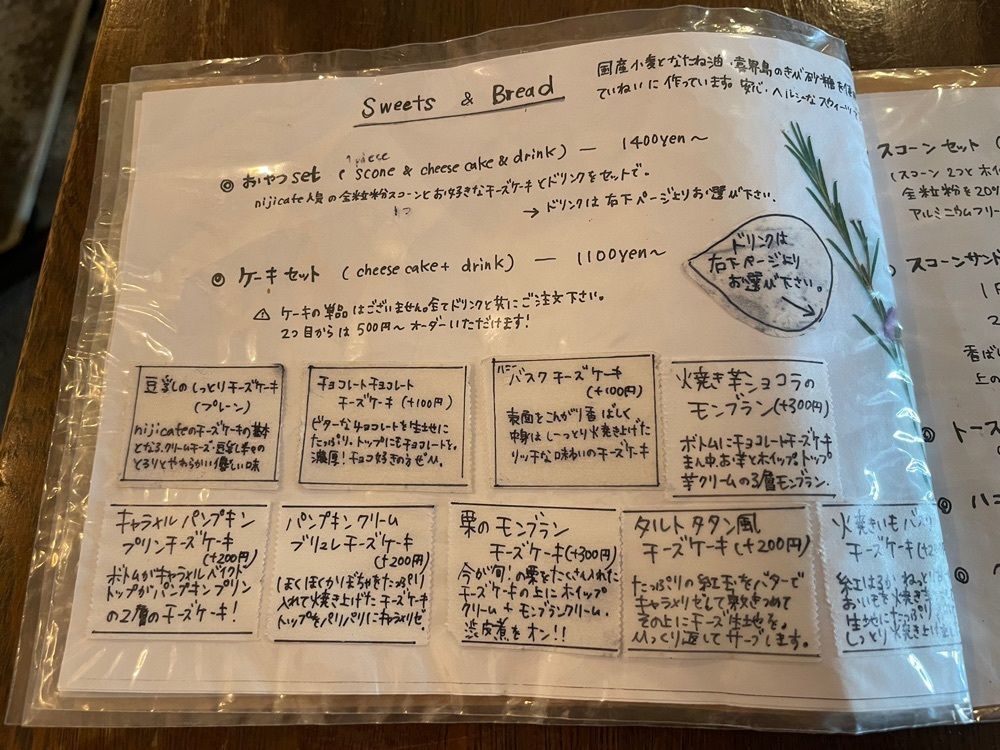 Sweets & Bread
国産小麦となたね油・喜界島のきび砂糖を
ていねいに作っています。安心・ヘルシーなスウィーツ
1 piece
◎ おやつset ( scone & cheese cake & drink) — 1400yen〜
nijicafe人気の全粒粉スコーンとお好きなチーズケーキとドリンクをセットで。
1つ
→ ドリンクは右下ページよりお選び下さい。
◎ ケーキセット ( cheese cake + drink) — 1100yen〜
⚠ ケーキの単品はございません。全てドリンクと共にご注文下さい。
2つ目からは500円〜オーダーいただけます!
ドリンクは
右下ページより
お選び下さい。
豆乳のしっとりチーズケーキ
(プレーン)
nijicafeのチーズケーキの基本
となる、クリームチーズ・豆乳
とろりとやわらかい優しい味
チョコレートチョコレート
チーズケーキ (+100円)
ビターなチョコレートを生地に
たっぷり。トップにもチョコレートを。
濃厚!チョコ好きの方ぜひ。
バスクチーズケーキ
(+100円)
表面をこんがり香ばしく
中身はしっとり焼き上げた
リッチな味わいのチーズケーキ
焼き芋ショコラの
モンブラン(+300円)
ボトムにチョコレートチーズケーキ
まん中、お芋とホイップ。トップ
芋クリームの3層モンブラン.
キャラメルパンプキン
プリンチーズケーキ
(+200円)
ボトムがキャラメルベイクド
トップがパンプキンプリン
の2層のチーズケーキ!
パンプキンクリーム
ブリュレチーズケーキ
(+200円)
ほくほくかぼちゃをたっぷり
入れて焼き上げたチーズケーキ
トップをパリパリにキャラメリゼ.
栗のモンブラン
チーズケーキ(+300円)
今が旬!の栗をたくさん入れた
チーズケーキの上にホイップ
クリーム+モンブランクリーム.
渋皮煮をオン!!
タルトタタン風
チーズケーキ(+200円)
たっぷりの紅玉をバターで
キャラメリゼして敷きつめて
その上にチーズ生地を。
ひっくり返してサーブします。
焼きいもバスク
チーズケーキ(+2
紅はるか、ねっと
おいもを焼き
生地にたっぷり
しっとり焼き上げ
スコーンセット (
(スコーン2つとホイ
全粒粉を20%
アルミニウムフリー
スコーンサンド
1
2
香ば
上の
◎ トース
◎ ハニ